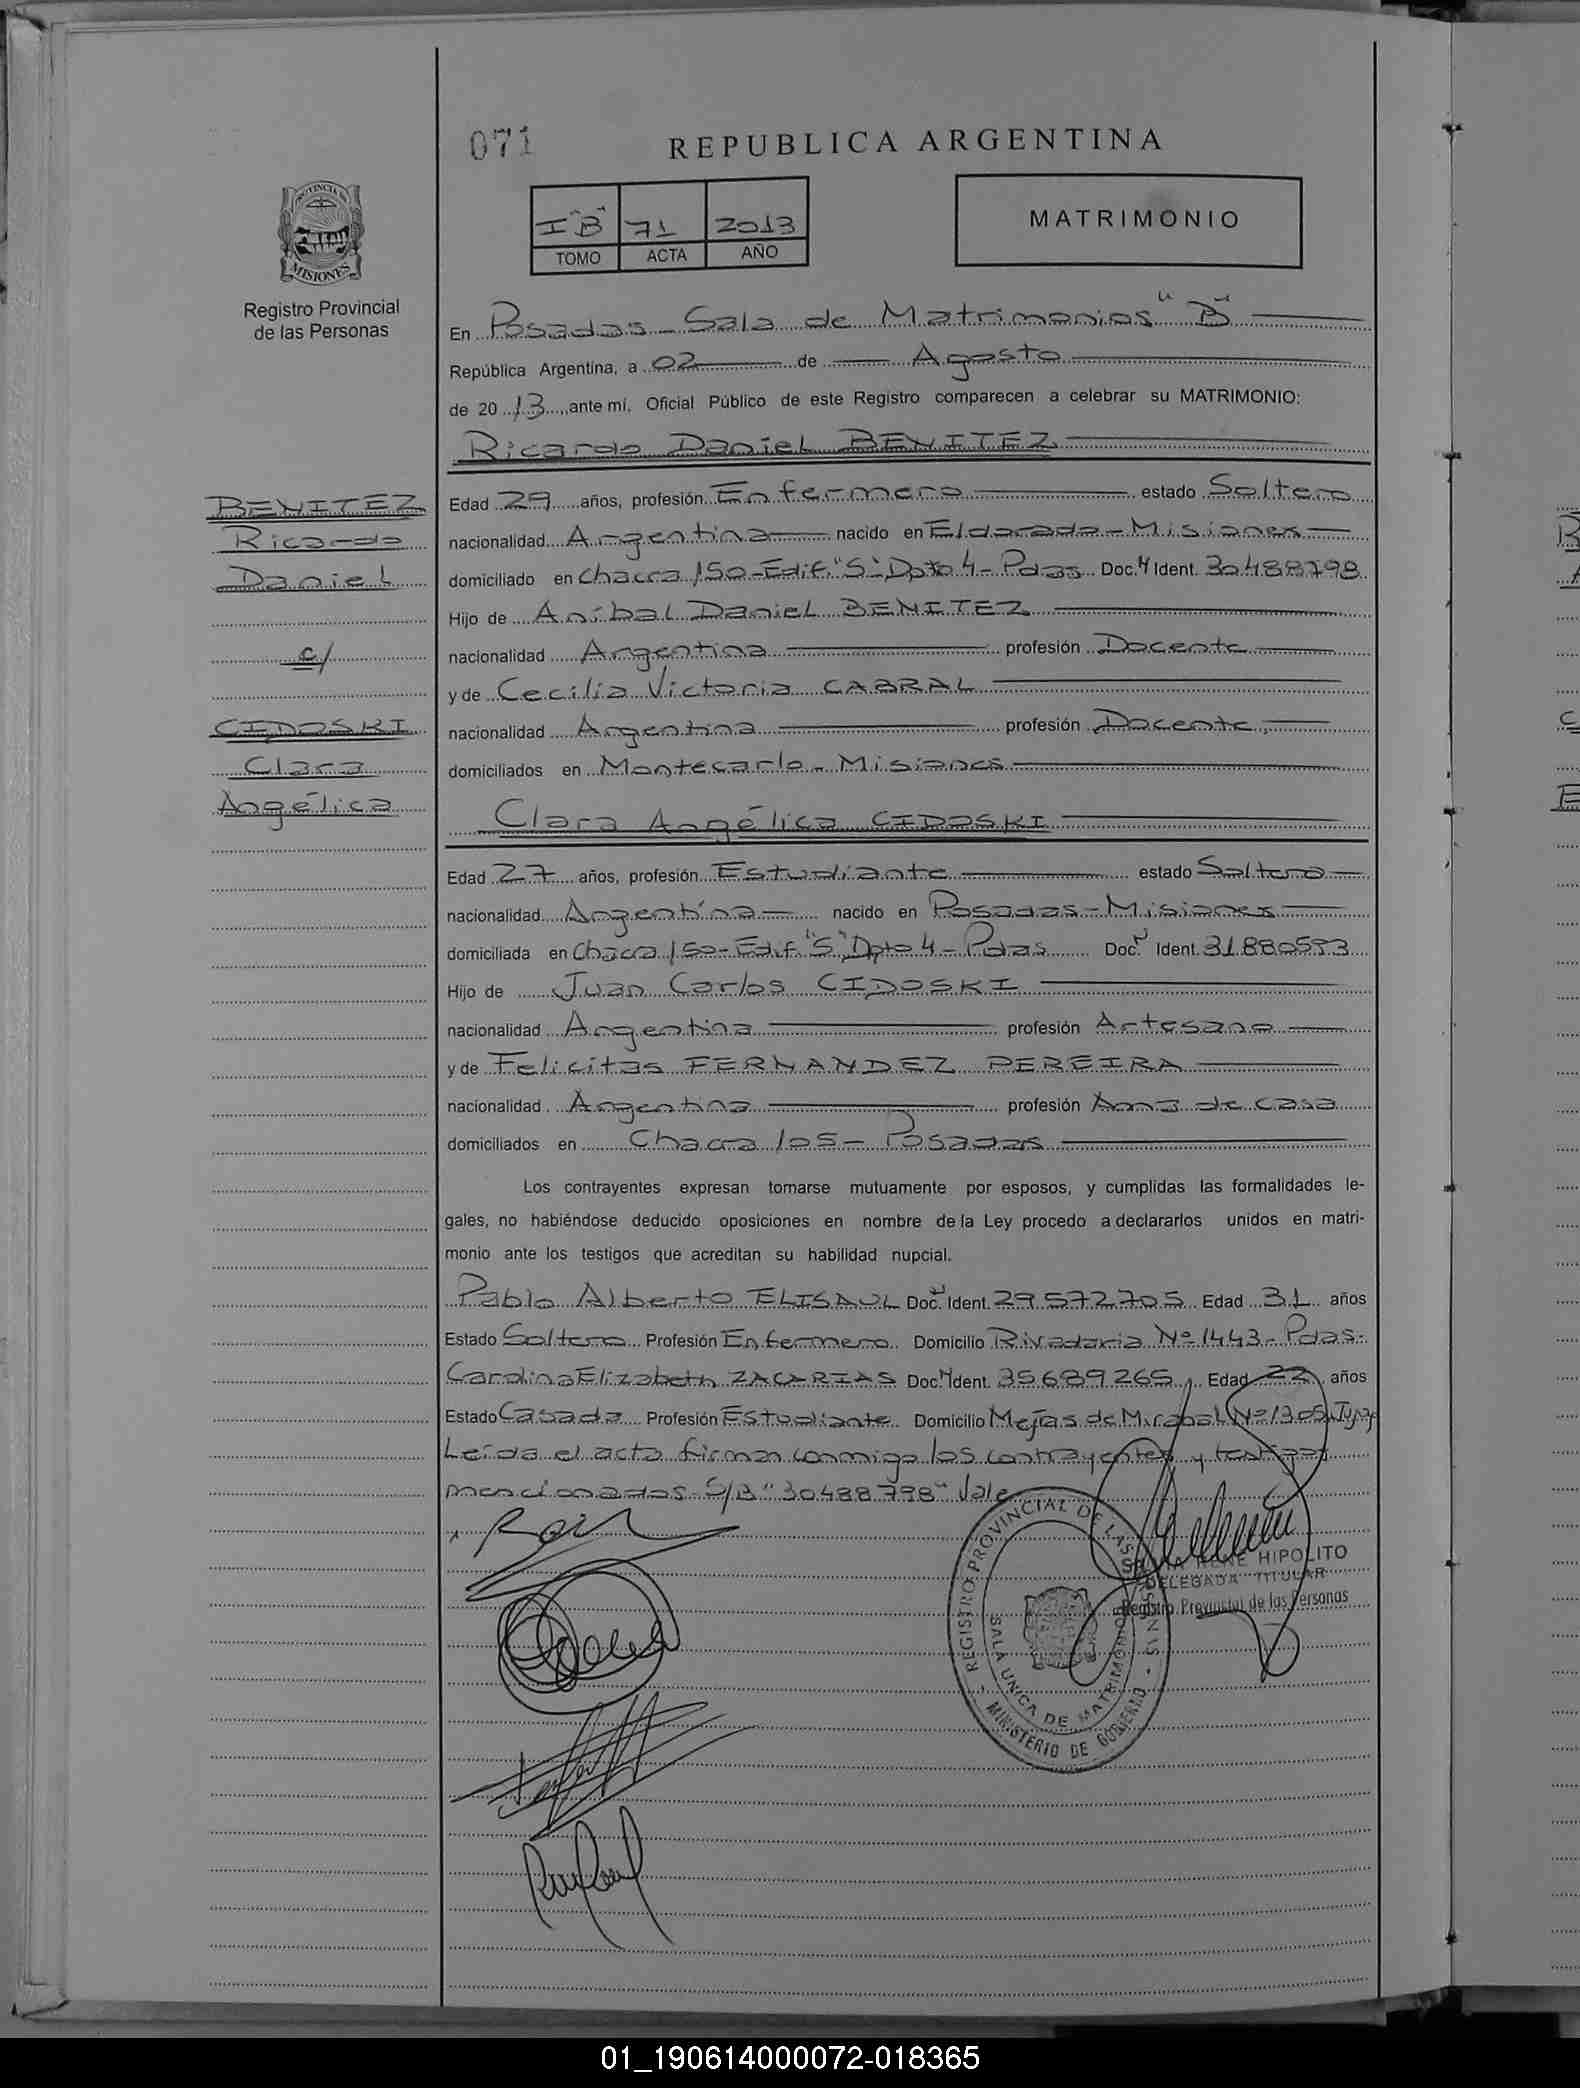 071
REPUBLICA ARGENTINA
PROVINCIA DE MISIONES
Registro Provincial
de las Personas
I "B" 71 2013
TOMO ACTA AÑO
MATRIMONIO
En Posadas - Sala de Matrimonios "B"
República Argentina, a 02 de Agosto
de 2013 ante mí, Oficial Público de este Registro comparecen a celebrar su MATRIMONIO:
Ricardo Daniel BENITEZ
BENITEZ
Ricardo
Daniel
c/
CIDOSKI
Clara
Angélica
Edad 29 años, profesión Enfermero estado Soltero
nacionalidad Argentina nacido en Eldorado - Misiones
domiciliado en Chacra 150 - Edif. "S" Dpto 4 - Pdas Doc. N Ident. 30488798
Hijo de Aníbal Daniel BENITEZ
nacionalidad Argentina profesión Docente
y de Cecilia Victoria CABRAL
nacionalidad Argentina profesión Docente
domiciliados en Montecarlo - Misiones
Clara Angélica CIDOSKI
Edad 27 años, profesión Estudiante estado Soltera
nacionalidad Argentina nacido en Posadas - Misiones
domiciliada en Chacra 150 - Edif. "S" Dpto 4 - Pdas Doc. N Ident. 31880593
Hijo de Juan Carlos CIDOSKI
nacionalidad Argentina profesión Artesano
y de Felicitas FERNANDEZ PEREIRA
nacionalidad Argentina profesión Ama de casa
domiciliados en Chacra 105 - Posadas
Los contrayentes expresan tomarse mutuamente por esposos, y cumplidas las formalidades le-
gales, no habiéndose deducido oposiciones en nombre de la Ley procedo a declararlos unidos en matri-
monio ante los testigos que acreditan su habilidad nupcial.
Pablo Alberto ELISAUL Doc. N Ident. 29572705 Edad 31 años
Estado Soltero Profesión Enfermero Domicilio Rivadavia Nº 1443 - Pdas-
Carolina Elizabeth ZACARIAS Doc. N Ident. 35689265 Edad 22 años
Estado Casada Profesión Estudiante Domicilio Mejías de Mirabal Nº 1305
Leída el acta firman conmigo los contrayentes y testigos
mencionados - S/B "30488798" Vale
REGISTRO PROVINCIAL DE LAS PERSONAS
SALA UNICA DE MATRIMONIOS
MINISTERIO DE GOBIERNO
RENE HIPOLITO
DELEGADA TITULAR
Registro Provincial de las Personas
01_190614000072-018365